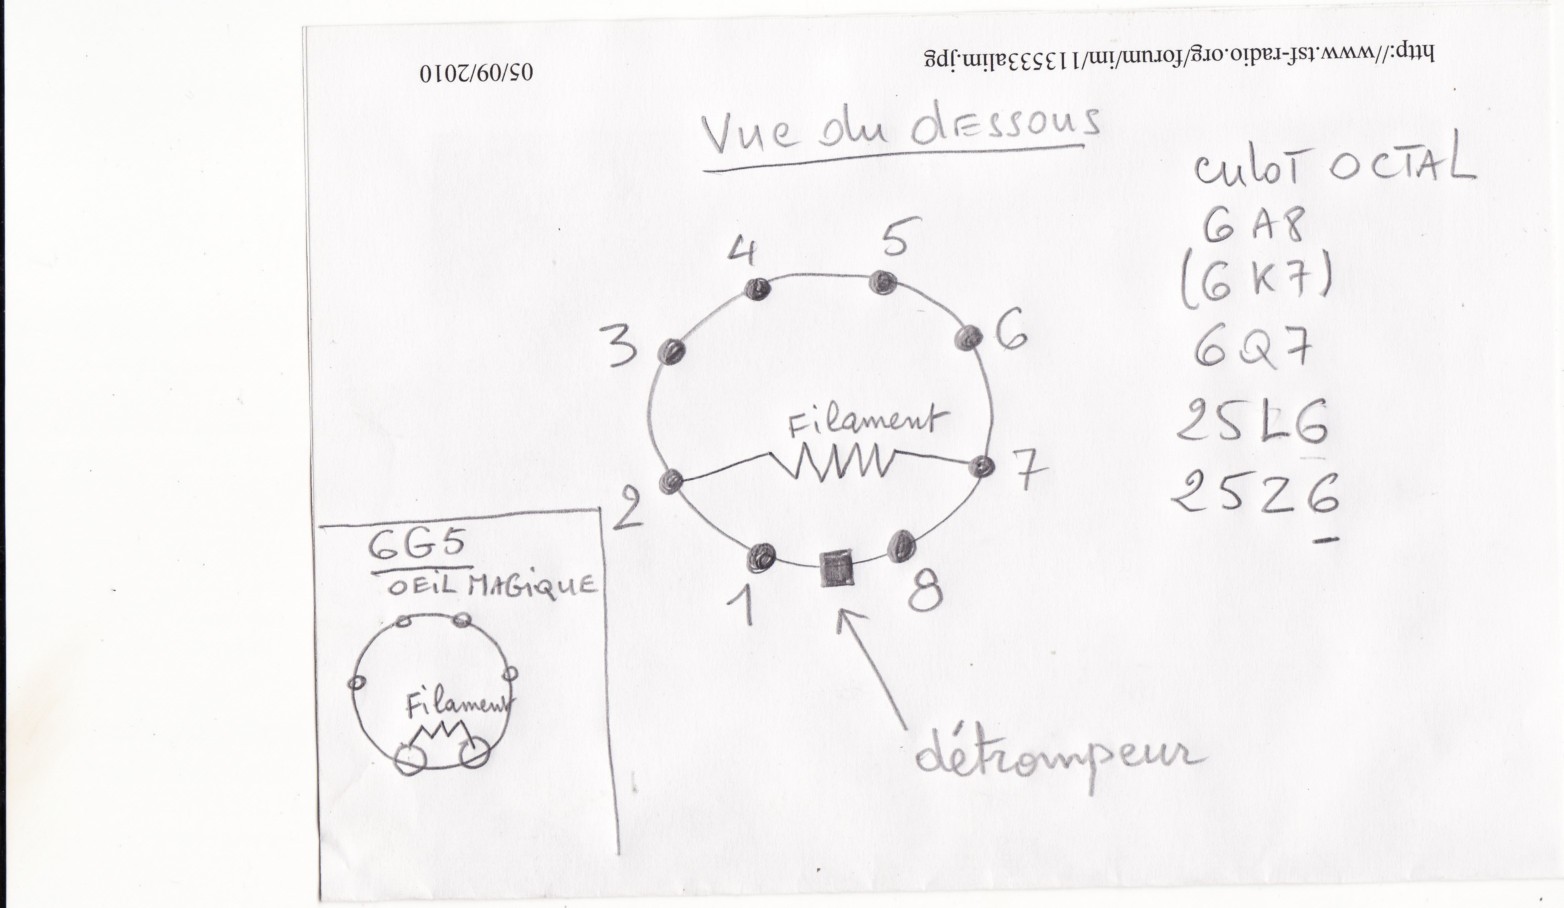 05/09/2010
http://www.tsf-radio.org/forum/im/113533alim.jpg
Vue du dessous
culot OCTAL
6A8
(6K7)
6Q7
25L6
25Z6
4
5
3
6
Filament
2
7
1
8
détrompeur
6G5
OEIL MAGIQUE
Filament